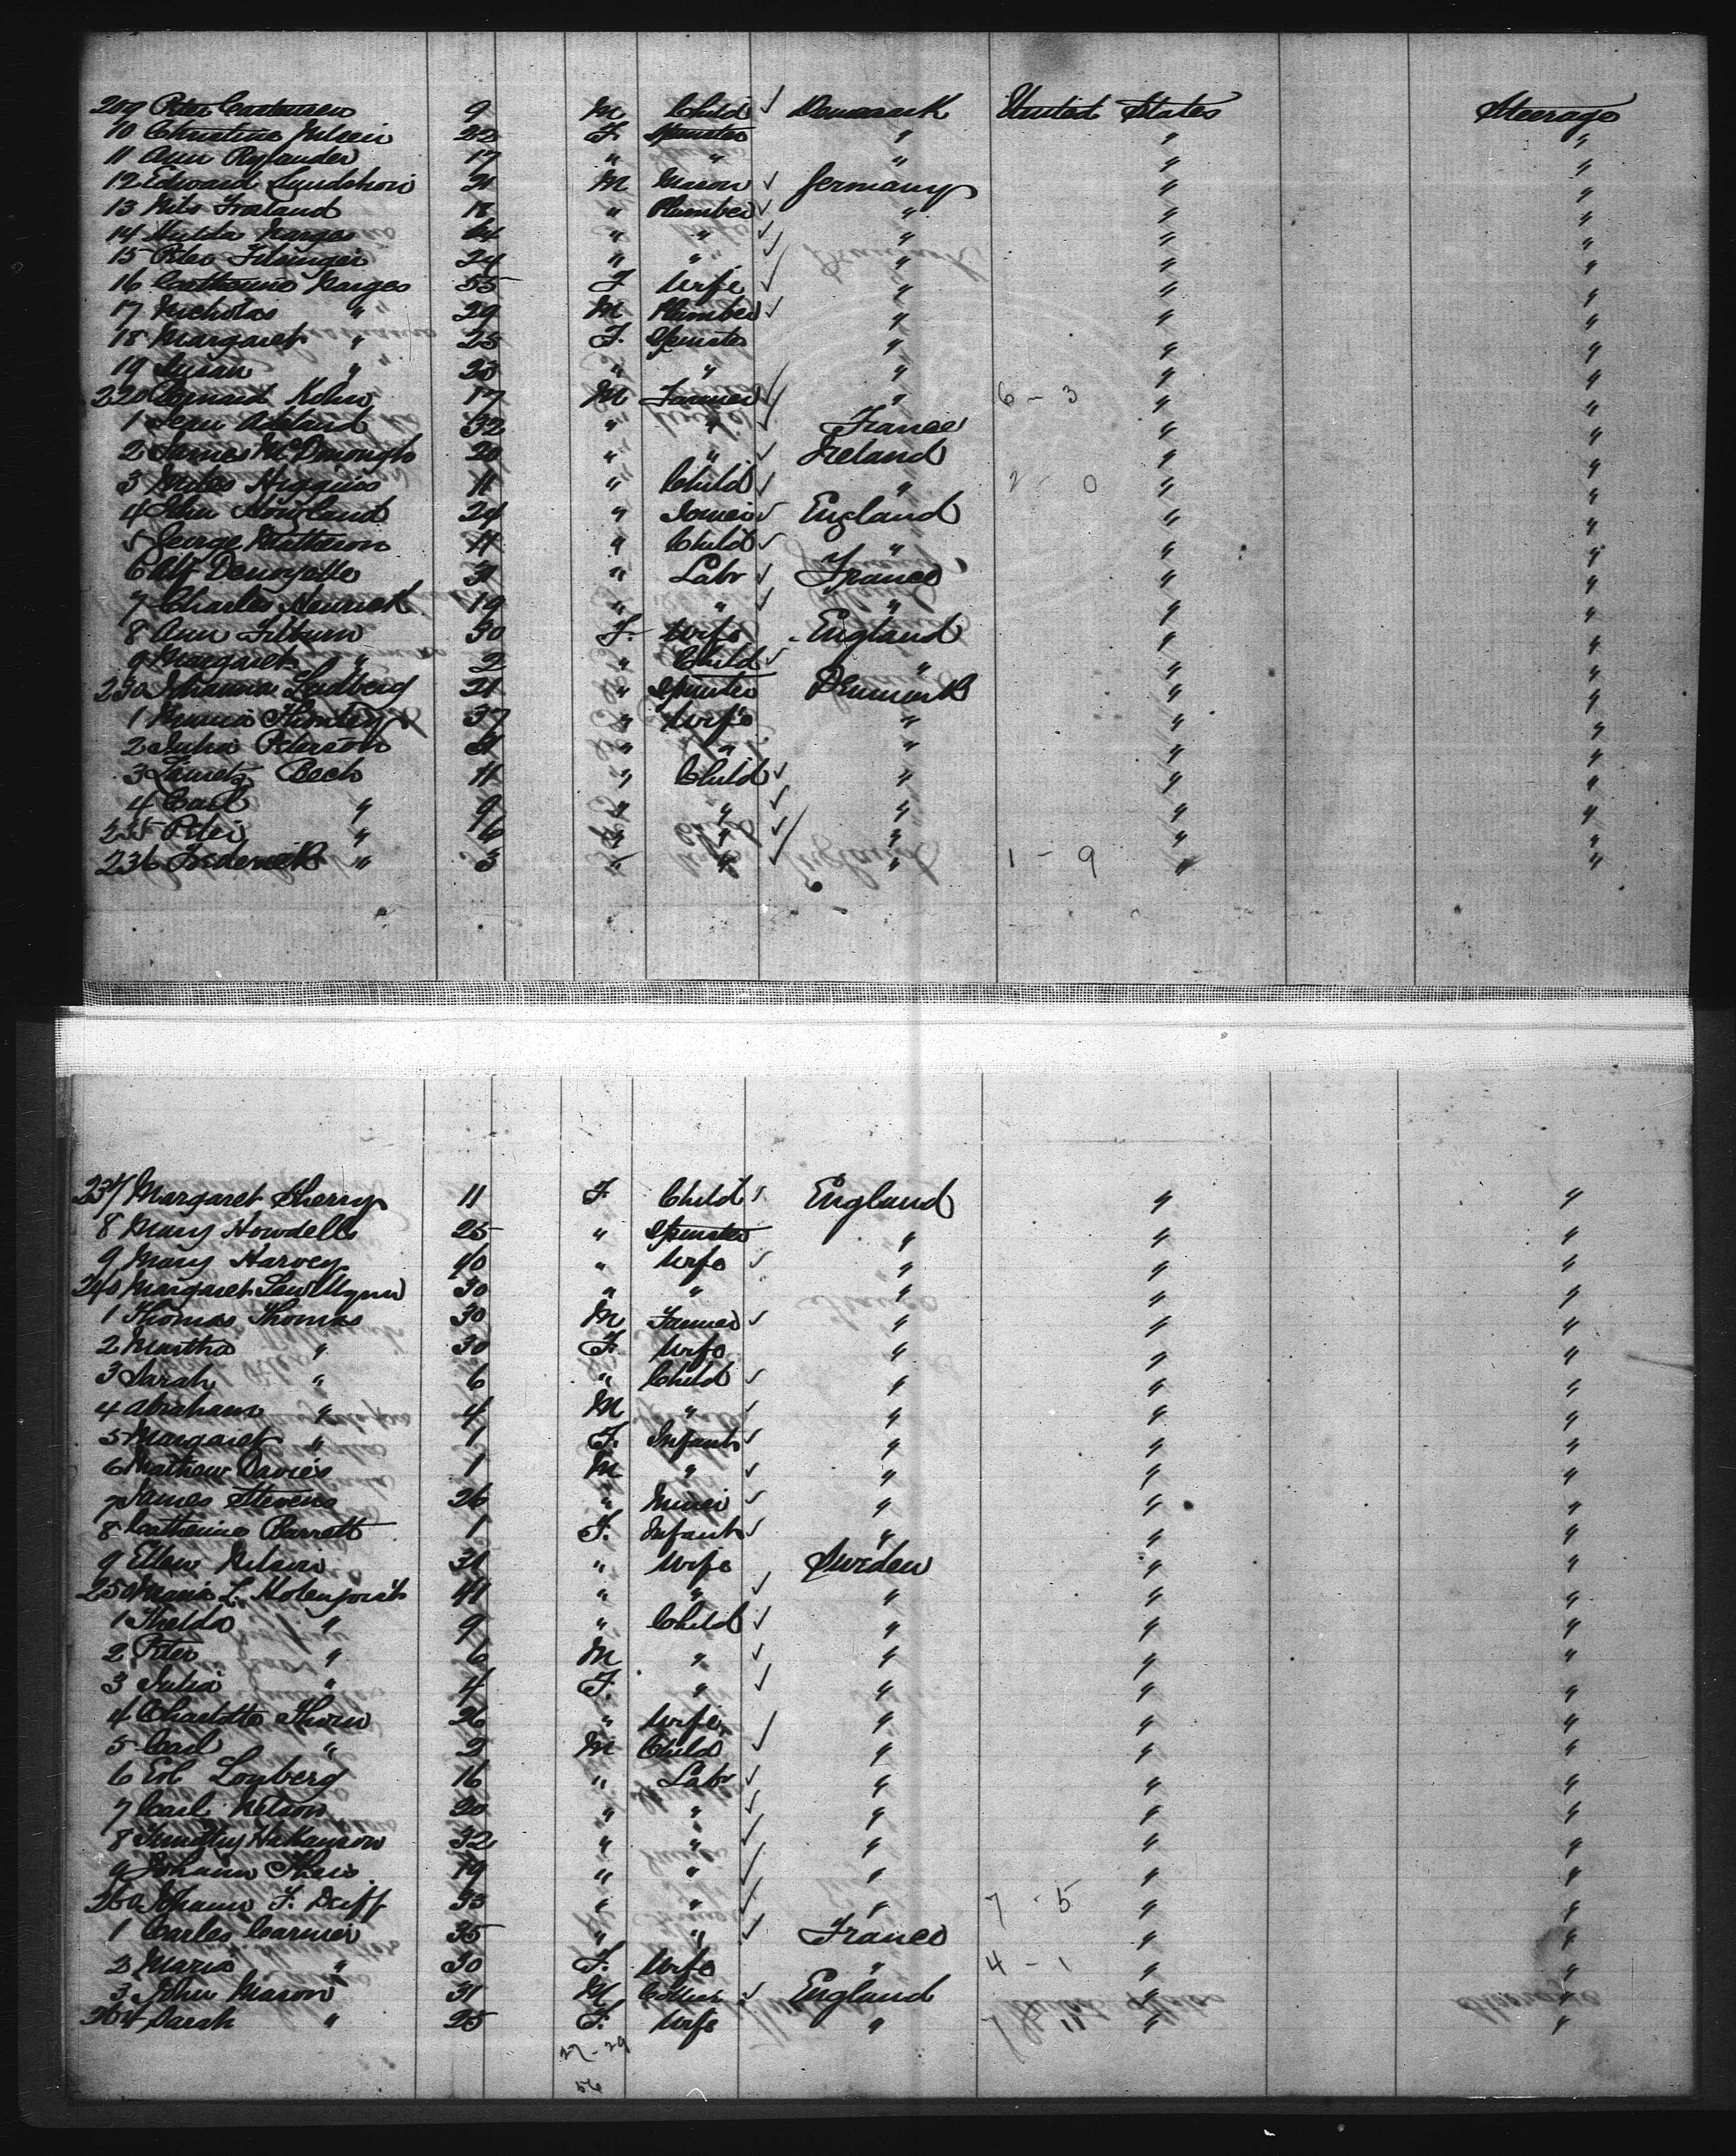 209 Peter Carstensen 9 M Child ✓ Denmark United States Steerage
10 Christine Nilsen 22 F. Spinster " " "
11 Ann Rylander 17 " " " " "
12 Edward 31 M Mason ✓ Germany " "
13 Nils 18 " Plumber ✓ " " "
14 Narges 64 " " ✓ " " "
15 Peter 24 " " ✓ " " "
16 Catherine Narges 55 F Wife ✓ " " "
17 Nicholas " 29 M Plumber ✓ " " "
18 Margaret " 25 F. Spinster " " "
19 Susan " 20 " " ✓ " " "
220 Bernard Kohn 17 M Farmer ✓ " 6 - 3 " "
1 Jean 32 " " ✓ France " "
2 James McDonough 20 " " ✓ Ireland " "
3 Miles Higgins 11 " Child ✓ " 2 - 0 " "
4 John Howland 24 " ✓ England " "
5 George 11 " Child ✓ " " "
6 Alf 31 " Labr ✓ France " "
7 Charles Henrick 19 " " ✓ " " "
8 Ann Filburn 30 F. Wife England " "
9 Margaret " 2 " Child ✓ " " "
230 Johanna Lindberg 21 " Spinster Denmark " "
1 Maria 37 " Wife " " "
2 Julia Peterson 31 " " " " "
3 Lauretz Bech 11 " Child ✓ " " "
4 Carl " 9 " " ✓ " " "
235 Peter " 6 " " ✓ " " "
236 Frederick " 3 " " ✓ " 1 - 9 " "
237 Margaret Sherry 11 F. Child ✓ England " "
8 Mary Howdell 25 " Spinster " " "
9 Mary Harvey 40 " Wife ✓ " " "
240 Margaret 30 " " " " "
1 Thomas Thomas 30 M Farmer ✓ " " "
2 Martha " 30 F. Wife " " "
3 Sarah " 6 " Child ✓ " " "
4 Abraham " 4 M " ✓ " " "
5 Margaret " 1 F. Infant ✓ " " "
6 Mathew Davies 1 M " ✓ " " "
7 James Stevens 26 " Miner ✓ " " "
8 Catherine Barrett 1 F. Infant ✓ " " "
9 Ellen Nelson 31 " Wife Sweden " "
250 Maria L. Holenquist 41 " " ✓ " " "
1 Thelda " 9 " Child ✓ " " "
2 Peter " 6 M " ✓ " " "
3 Julia " 4 F. " ✓ " " "
4 Charlotte Thorn 26 " Wife " " "
5 Carl " 2 M Child ✓ " " "
6 Lonberg 16 " Labr ✓ " " "
7 Carl Nelson 20 " " ✓ " " "
8 Hakanson 32 " " ✓ " " "
9 Johann 19 " " ✓ " " "
260 Johann F. 33 " " ✓ " 7 - 5 " "
1 Carles Carnier 35 " " ✓ France " "
2 Maria " 30 F. Wife " 4 - 1 " "
3 John Mason 31 M Collier ✓ England " "
264 Sarah " 25 F. Wife " " "
27 - 29
56